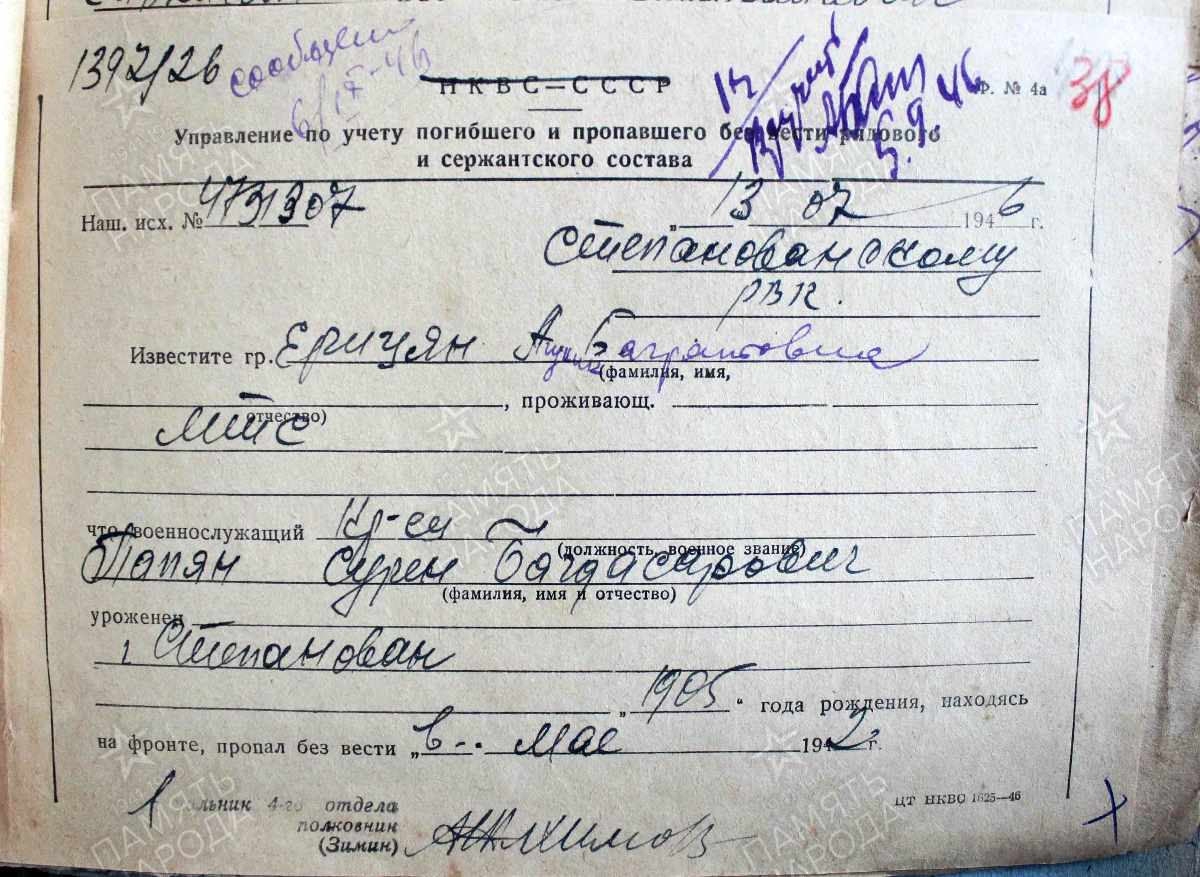 1392/26 сообщено
6/IX-46
НКВС—СССР
Ф. № 4а
38
5.9.46
Управление по учету погибшего и пропавшего без вести рядового
и сержантского состава
Наш. исх. № 4731907 „13 07 1946 г.
Степанованскому
РВК.
Известите гр. Ерицян Багратовна
(фамилия, имя,
отчество)
, проживающ.
МТС
что военнослужащий Кр-ец
(должность, военное звание)
Тапян Сурен Багдасарович
(фамилия, имя и отчество)
уроженец
г Степанован
„1905“ года рождения, находясь
на фронте, пропал без вести „в-" мае 1942 г.
4-го отдела
полковник
(Зимин)
ЦТ НКВС 1625—46
ПАМЯТЬ
НАРОДА